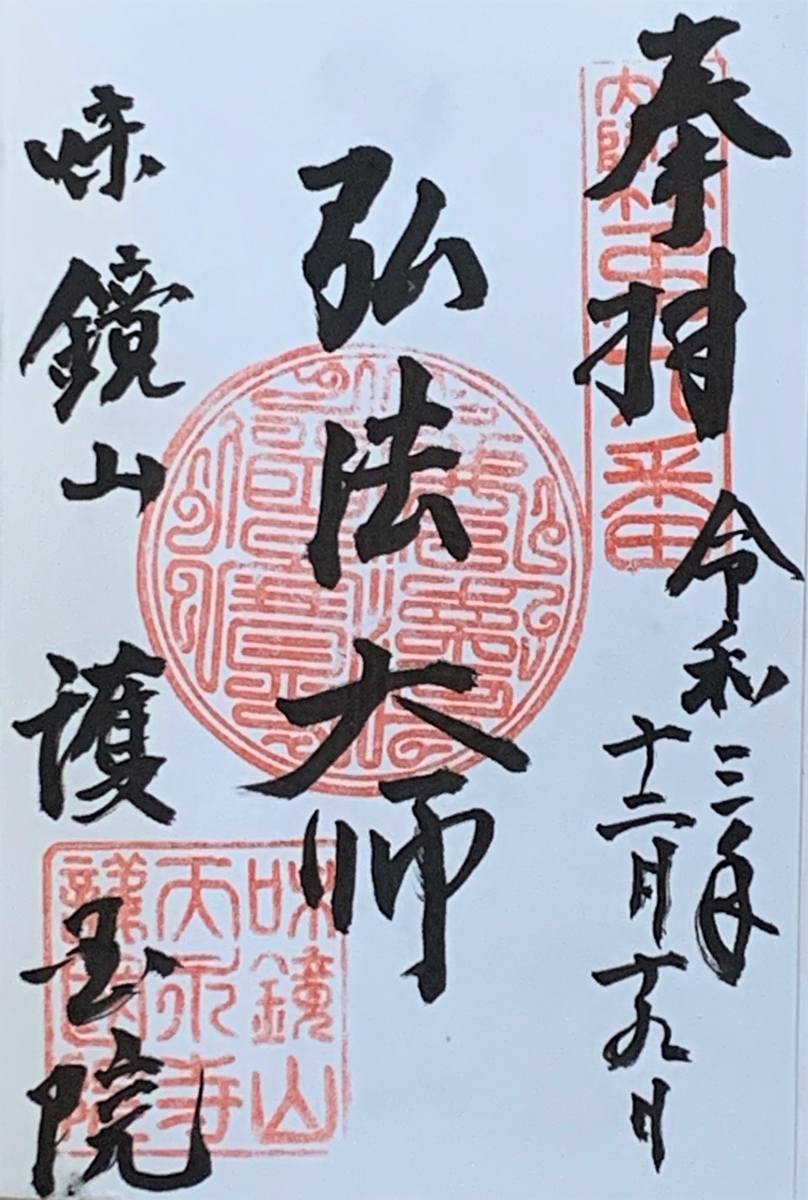 奉拝
令和三年
十二月十九日
弘法大師
味鏡山 護国院
味鏡山
天永寺
護國院